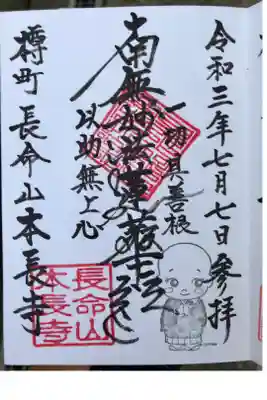 令和三年七月七日参拝
切具善根
南無妙法蓮華経
以助無上心
樽町 長命山 本長寺
長命山
本長寺